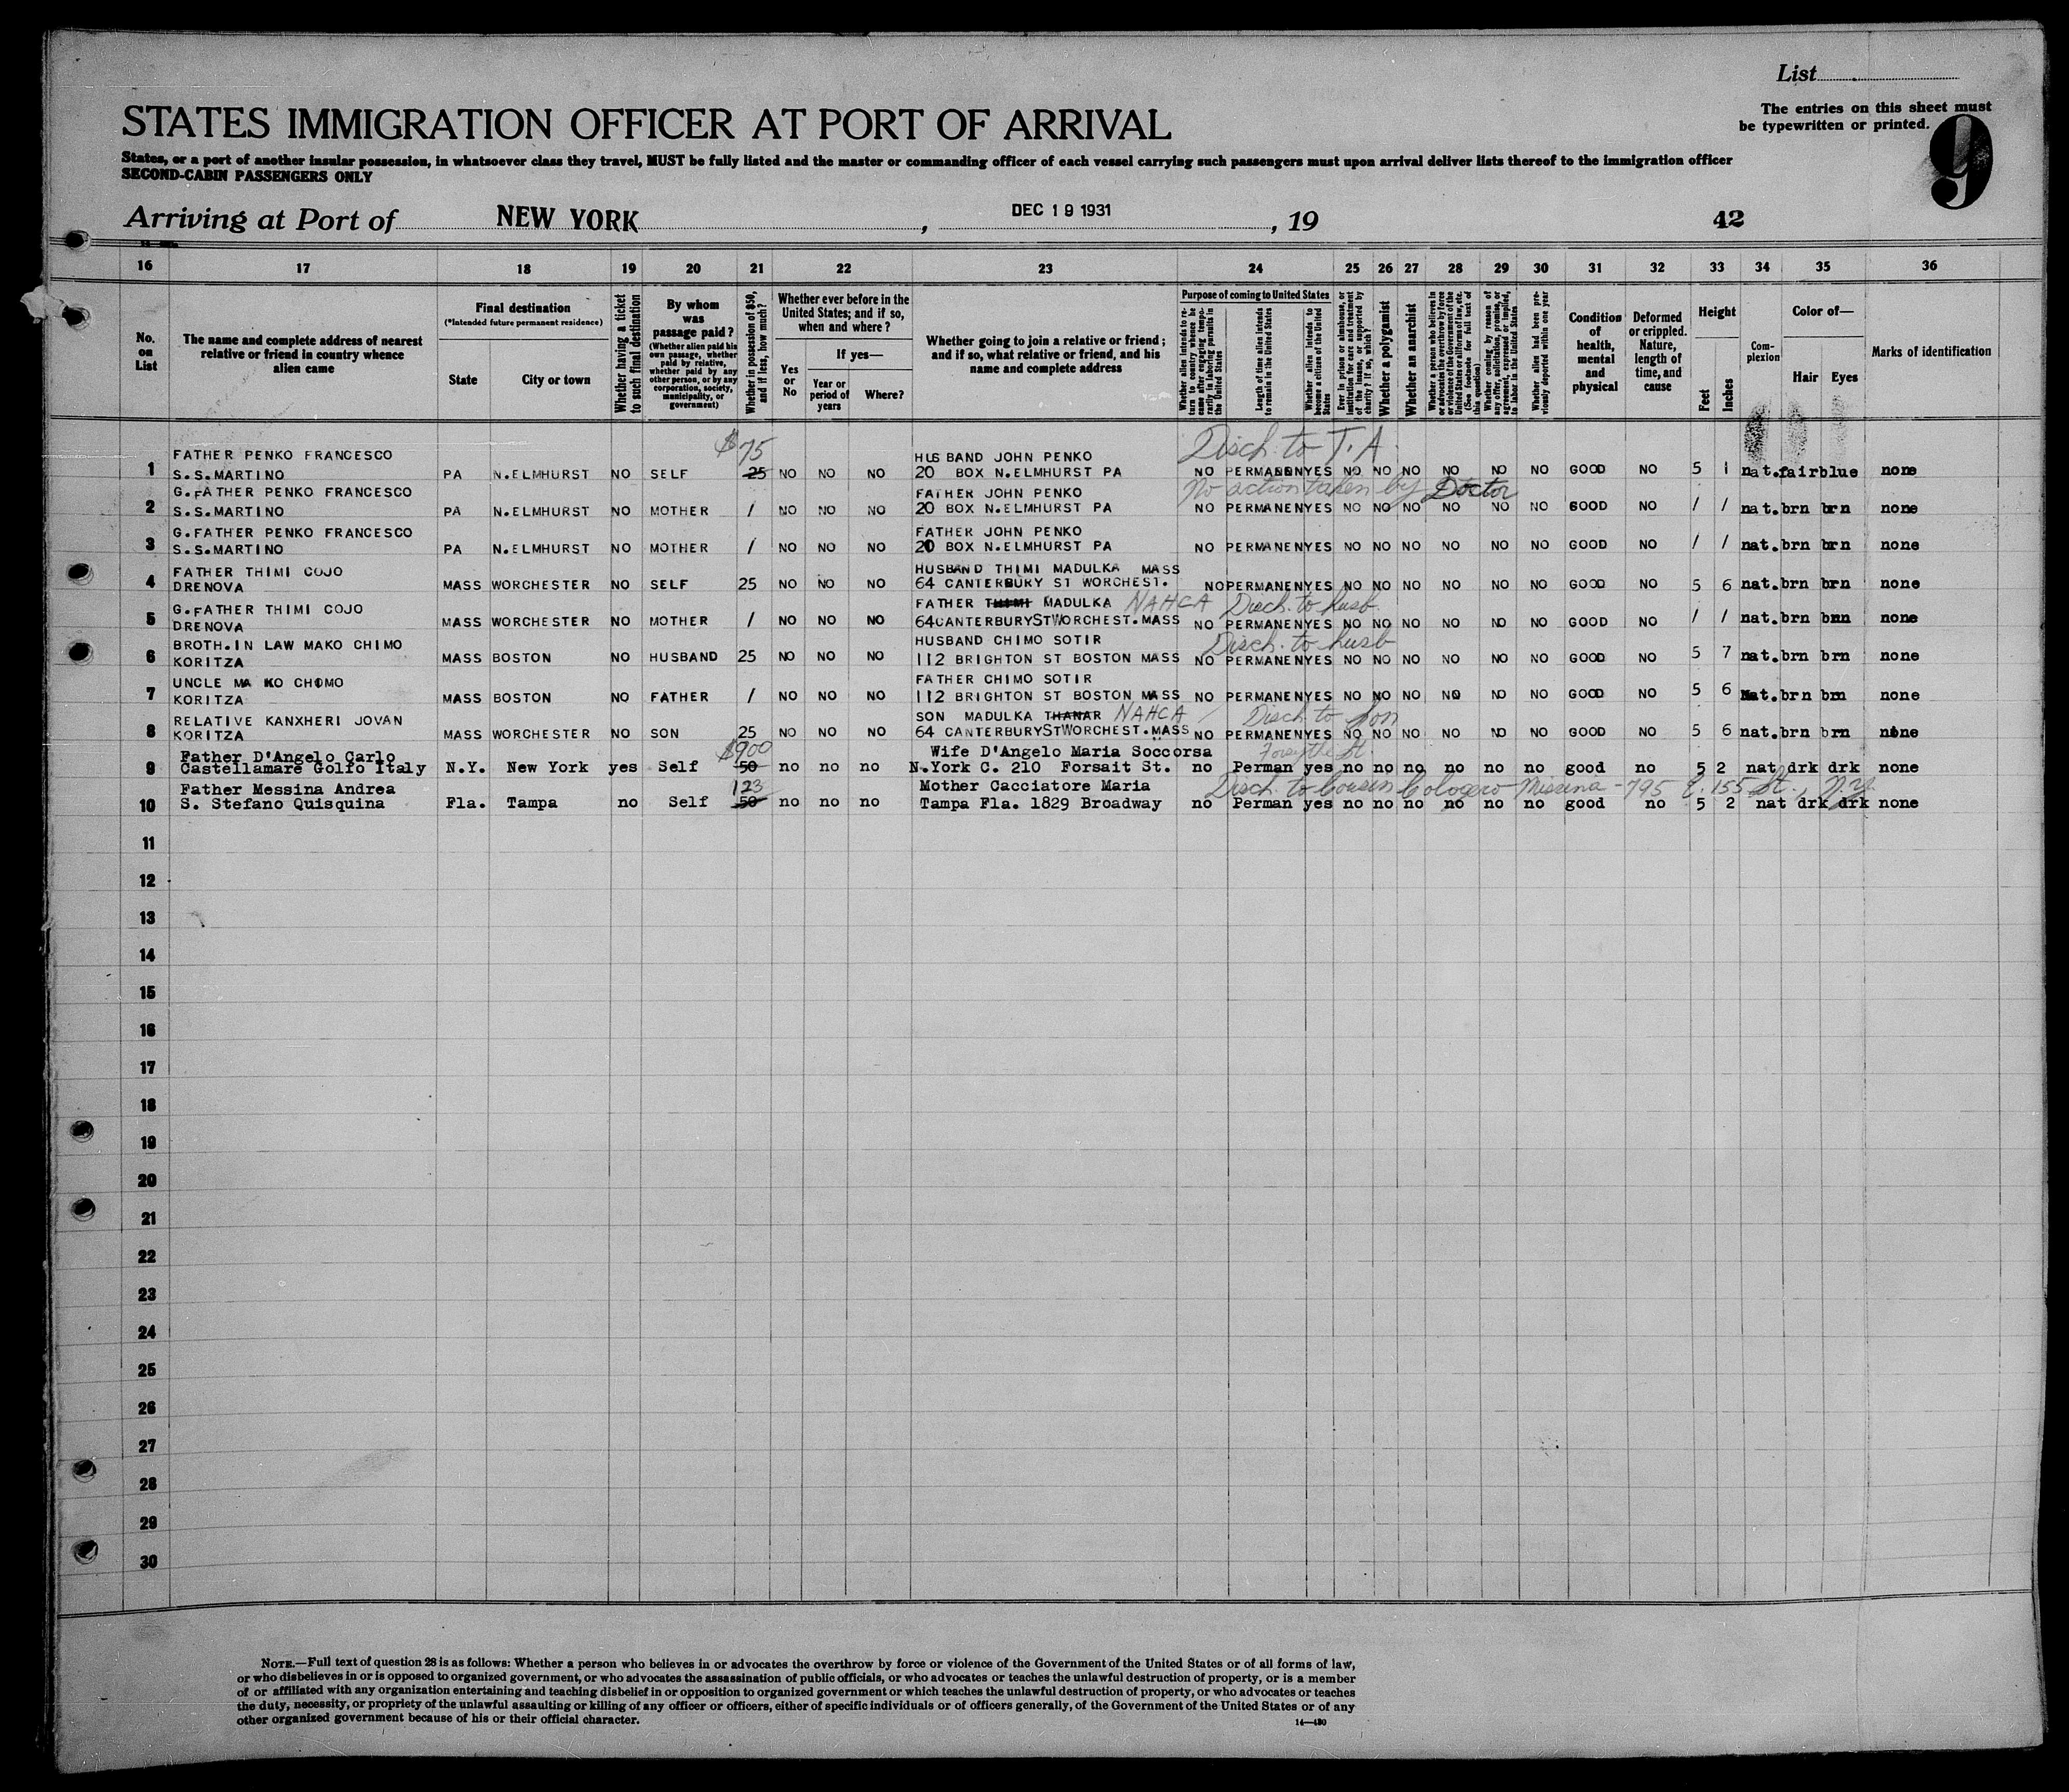 List
The entries on this sheet must
be typewritten or printed.
9
STATES IMMIGRATION OFFICER AT PORT OF ARRIVAL
States, or a port of another insular possession, in whatsoever class they travel, MUST be fully listed and the master or commanding officer of each vessel carrying such passengers must upon arrival deliver lists thereof to the immigration officer
SECOND-CABIN PASSENGERS ONLY
Arriving at Port of NEW YORK , DEC 19 1931 , 19 42
16 17 18 19 20 21 22 23 24 25 26 27 28 29 30 31 32 33 34 35 36
No. on List
The name and complete address of nearest relative or friend in country whence alien came
Final destination
(*Intended future permanent residence)
State
City or town
Whether having a ticket to such final destination
By whom was passage paid?
(Whether alien paid his own passage, whether paid by relative, whether paid by any other person, or by any corporation, society, municipality, or government)
Whether in possession of $50, and if less, how much?
Whether ever before in the United States; and if so, when and where?
Yes or No
If yes—
Year or period of years
Where?
Whether going to join a relative or friend; and if so, what relative or friend, and his name and complete address
Purpose of coming to United States
Whether alien intends to return to country whence he came after engaging temporarily in laboring pursuits in the United States
Length of time alien intends to remain in the United States
Whether alien intends to become a citizen of the United States
Ever in prison or almshouse, or institution for care and treatment of the insane, or supported by charity? If so, which?
Whether a polygamist
Whether an anarchist
Whether a person who believes in or advocates the overthrow by force or violence of the Government of the United States or all forms of law, etc. (See footnote for full text of this question)
Whether coming by reason of any offer, solicitation, promise, or agreement, expressed or implied, to labor in the United States
Whether alien had been previously deported within one year
Condition of health, mental and physical
Deformed or crippled. Nature, length of time, and cause
Height
Feet
Inches
Complexion
Color of—
Hair
Eyes
Marks of identification
FATHER PENKO FRANCESCO $75 HUSBAND JOHN PENKO Disch. to T.A.
1 S.S.MARTINO PA N.ELMHURST NO SELF 25 NO NO NO 20 BOX N.ELMHURST PA NO PERMANENYES NO NO NO NO NO NO GOOD NO 5 1 nat.fairblue none
G.FATHER PENKO FRANCESCO FATHER JOHN PENKO No action taken by Doctor
2 S.S.MARTINO PA N.ELMHURST NO MOTHER / NO NO NO 20 BOX N.ELMHURST PA NO PERMANENYES NO NO NO NO NO NO GOOD NO / / nat.brn brn none
G.FATHER PENKO FRANCESCO FATHER JOHN PENKO
3 S.S.MARTINO PA N.ELMHURST NO MOTHER / NO NO NO 20 BOX N.ELMHURST PA NO PERMANENYES NO NO NO NO NO NO GOOD NO / / nat.brn brn none
FATHER THIMI COJO HUSBAND THIMI MADULKA MASS
4 DRENOVA MASS WORCHESTER NO SELF 25 NO NO NO 64 CANTERBURY ST WORCHEST. NOPERMANENYES NO NO NO NO NO NO GOOD NO 5 6 nat.brn brn none
G.FATHER THIMI COJO FATHER THIMI MADULKA NAHCA Disch. to husb.
5 DRENOVA MASS WORCHESTER NO MOTHER / NO NO NO 64CANTERBURYSTWORCHEST.MASS NO PERMANENYES NO NO NO NO NO NO GOOD NO / / nat.brn bnn none
BROTH.IN LAW MAKO CHIMO HUSBAND CHIMO SOTIR Disch. to husb
6 KORITZA MASS BOSTON NO HUSBAND 25 NO NO NO 112 BRIGHTON ST BOSTON MASS NO PERMANENYES NO NO NO NO NO NO GOOD NO 5 7 nat.brn brn none
UNCLE MA KO CHIMO FATHER CHIMO SOTIR
7 KORITZA MASS BOSTON NO FATHER / NO NO NO 112 BRIGHTON ST BOSTON MASS NO PERMANENYES NO NO NO NO NO NO GOOD NO 5 6 nat.brn brn none
RELATIVE KANXHERI JOVAN SON MADULKA THANAR NAHCA Disch. to son
8 KORITZA MASS WORCHESTER NO SON 25 NO NO NO 64 CANTERBURYSTWORCHEST.MASS NO PERMANENYES NO NO NO NO NO NO GOOD NO 5 6 nat.brn brn none
Father D'Angelo Carlo $900 Wife D'Angelo Maria Soccorsa Forsythe St.
9 Castellamare Golfo Italy N.Y. New York yes Self 50 no no no N.York C. 210 Forsait St. no Perman yes no no no no no no good no 5 2 nat drk drk none
Father Messina Andrea 123 Mother Cacciatore Maria Disch. to Cousin Cologero Missina - 795 E. 155 St., N.Y.
10 S. Stefano Quisquina Fla. Tampa no Self 50 no no no Tampa Fla. 1829 Broadway no Perman yes no no no no no no good no 5 2 nat drk drk none
11
12
13
14
15
16
17
18
19
20
21
22
23
24
25
26
27
28
29
30
NOTE.—Full text of question 28 is as follows: Whether a person who believes in or advocates the overthrow by force or violence of the Government of the United States or of all forms of law,
or who disbelieves in or is opposed to organized government, or who advocates the assassination of public officials, or who advocates or teaches the unlawful destruction of property, or is a member
of or affiliated with any organization entertaining and teaching disbelief in or opposition to organized government or which teaches the unlawful destruction of property, or who advocates or teaches
the duty, necessity, or propriety of the unlawful assaulting or killing of any officer or officers, either of specific individuals or of officers generally, of the Government of the United States or of any
other organized government because of his or their official character.
14—430